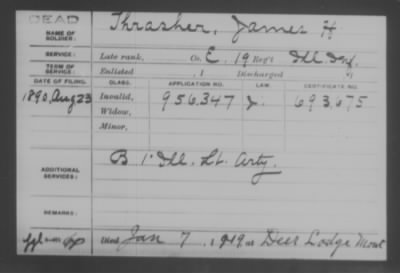 DEAD
NAME OF SOLDIER: Thrasher, James H
SERVICE: Late rank, Co. E, 19 Reg't Ill Inf.
TERM OF SERVICE: Enlisted , 1 Discharged , 1
DATE OF FILING. CLASS. APPLICATION NO. LAW. CERTIFICATE NO.
1890, Aug 23 Invalid, 956,347 J. 693,675
Widow,
Minor,
ADDITIONAL SERVICES: B 1" Ill. Lt. Arty.
REMARKS:
Died Jan 7, 1919 at Deer Lodge Mont